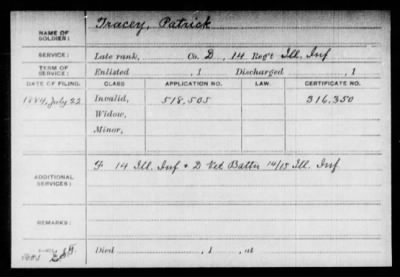 Tracey, Patrick
NAME OF SOLDIER:
SERVICE: Late rank, Co. D, 14 Reg't Ill. Inf
TERM OF SERVICE: Enlisted , 1 Discharged , 1
DATE OF FILING. CLASS APPLICATION NO. LAW. CERTIFICATE NO.
1884, July 22 Invalid, 518,505 316,350
Widow,
Minor,
ADDITIONAL SERVICES: F 14 Ill. Inf + D Vet Battn 14/15 Ill. Inf
REMARKS:
Died , 1 , at